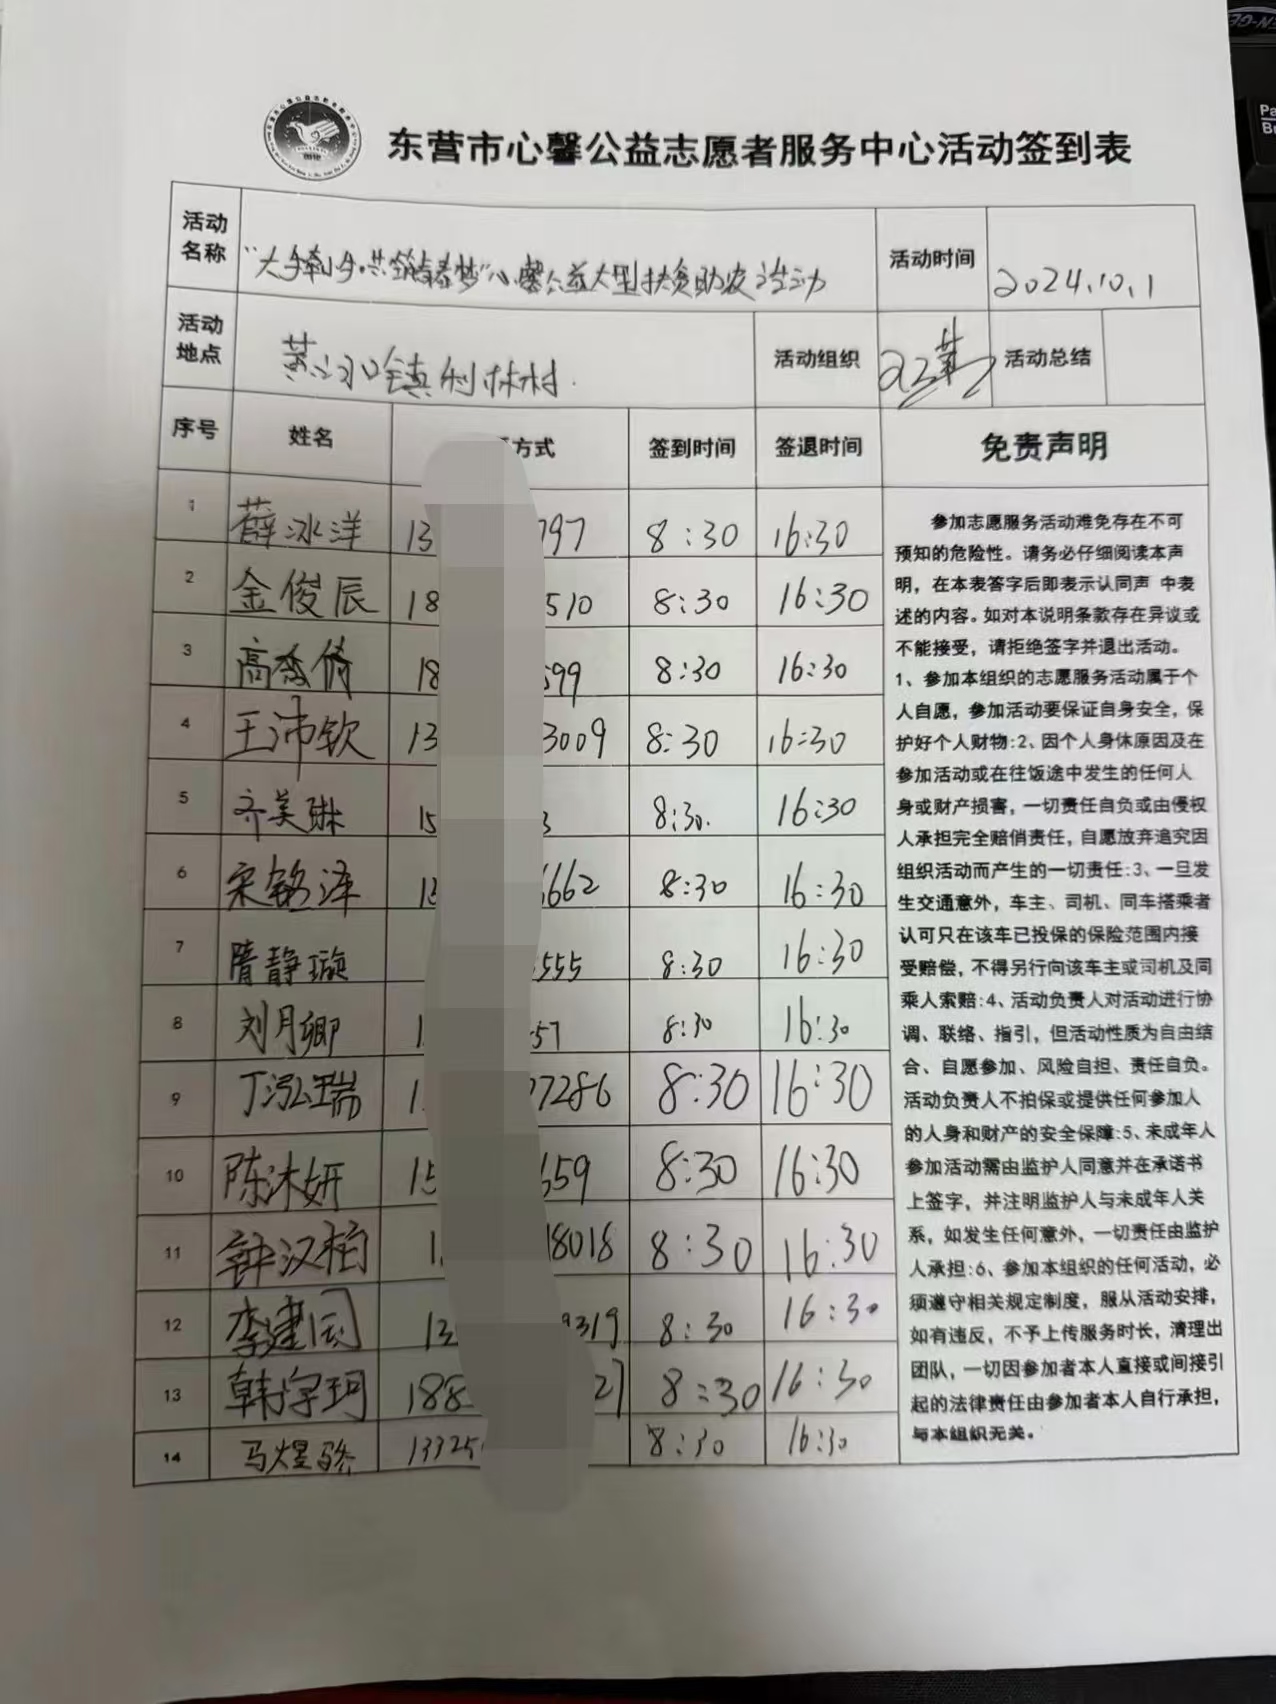 东营市心馨公益志愿者服务中心活动签到表
活动名称 "大手牵小手·共筑青春梦"心馨公益大型扶贫助农活动 活动时间 2024.10.1
活动地点 黄河口镇利林村. 活动组织 活动总结
序号 姓名 方式 签到时间 签退时间 免责声明
1 薛冰洋 13 797 8:30 16:30
2 金俊辰 18 510 8:30 16:30
3 高秀倩 18 599 8:30 16:30
4 王沛钦 13 3009 8:30 16:30
5 齐美琳 15 3 8:30. 16:30
6 宋铭泽 13 6662 8:30 16:30
7 隋静璇 555 8:30 16:30
8 刘月卿 1 57 8:30 16:30
9 丁泓瑞 1 77286 8:30 16:30
10 陈沐妍 15 659 8:30 16:30
11 钟汉柏 1 18018 8:30 16:30
12 李建国 13 9319 8:30 16:30
13 韩字珂 188 27 8:30 16:30
14 马煜骁 13325 8:30 16:30
参加志愿服务活动难免存在不可
预知的危险性。请务必仔细阅读本声
明，在本表答字后即表示认同声 中表
述的内容。如对本说明条款存在异议或
不能接受，请拒绝签字并退出活动。
1、参加本组织的志愿服务活动属于个
人自愿，参加活动要保证自身安全，保
护好个人财物:2、因个人身休原因及在
参加活动或在往饭途中发生的任何人
身或财产损害，一切责任自负或由侵权
人承担完全赔俏责任，自愿放弃追究因
组织活动而产生的一切责任:3、一旦发
生交通意外，车主、司机、同车搭乘者
认可只在该车已投保的保险范围内接
受赔偿，不得另行向该车主或司机及同
乘人索赔:4、活动负责人对活动进行协
调、联络、指引，但活动性质为自由结
合、自愿参加、风险自担、责任自负。
活动负责人不拍保或提供任何参加人
的人身和财产的安全保障:5、未成年人
参加活动需由监护人同意并在承诺书
上签字，并注明监护人与未成年人关
系，如发生任何意外，一切责任由监护
人承担:6、参加本组织的任何活动，必
须遵守相关规定制度，服从活动安排，
如有违反，不予上传服务时长，清理出
团队，一切因参加者本人直接或间接引
起的法律责任由参加者本人自行承担，
与本组织无关。